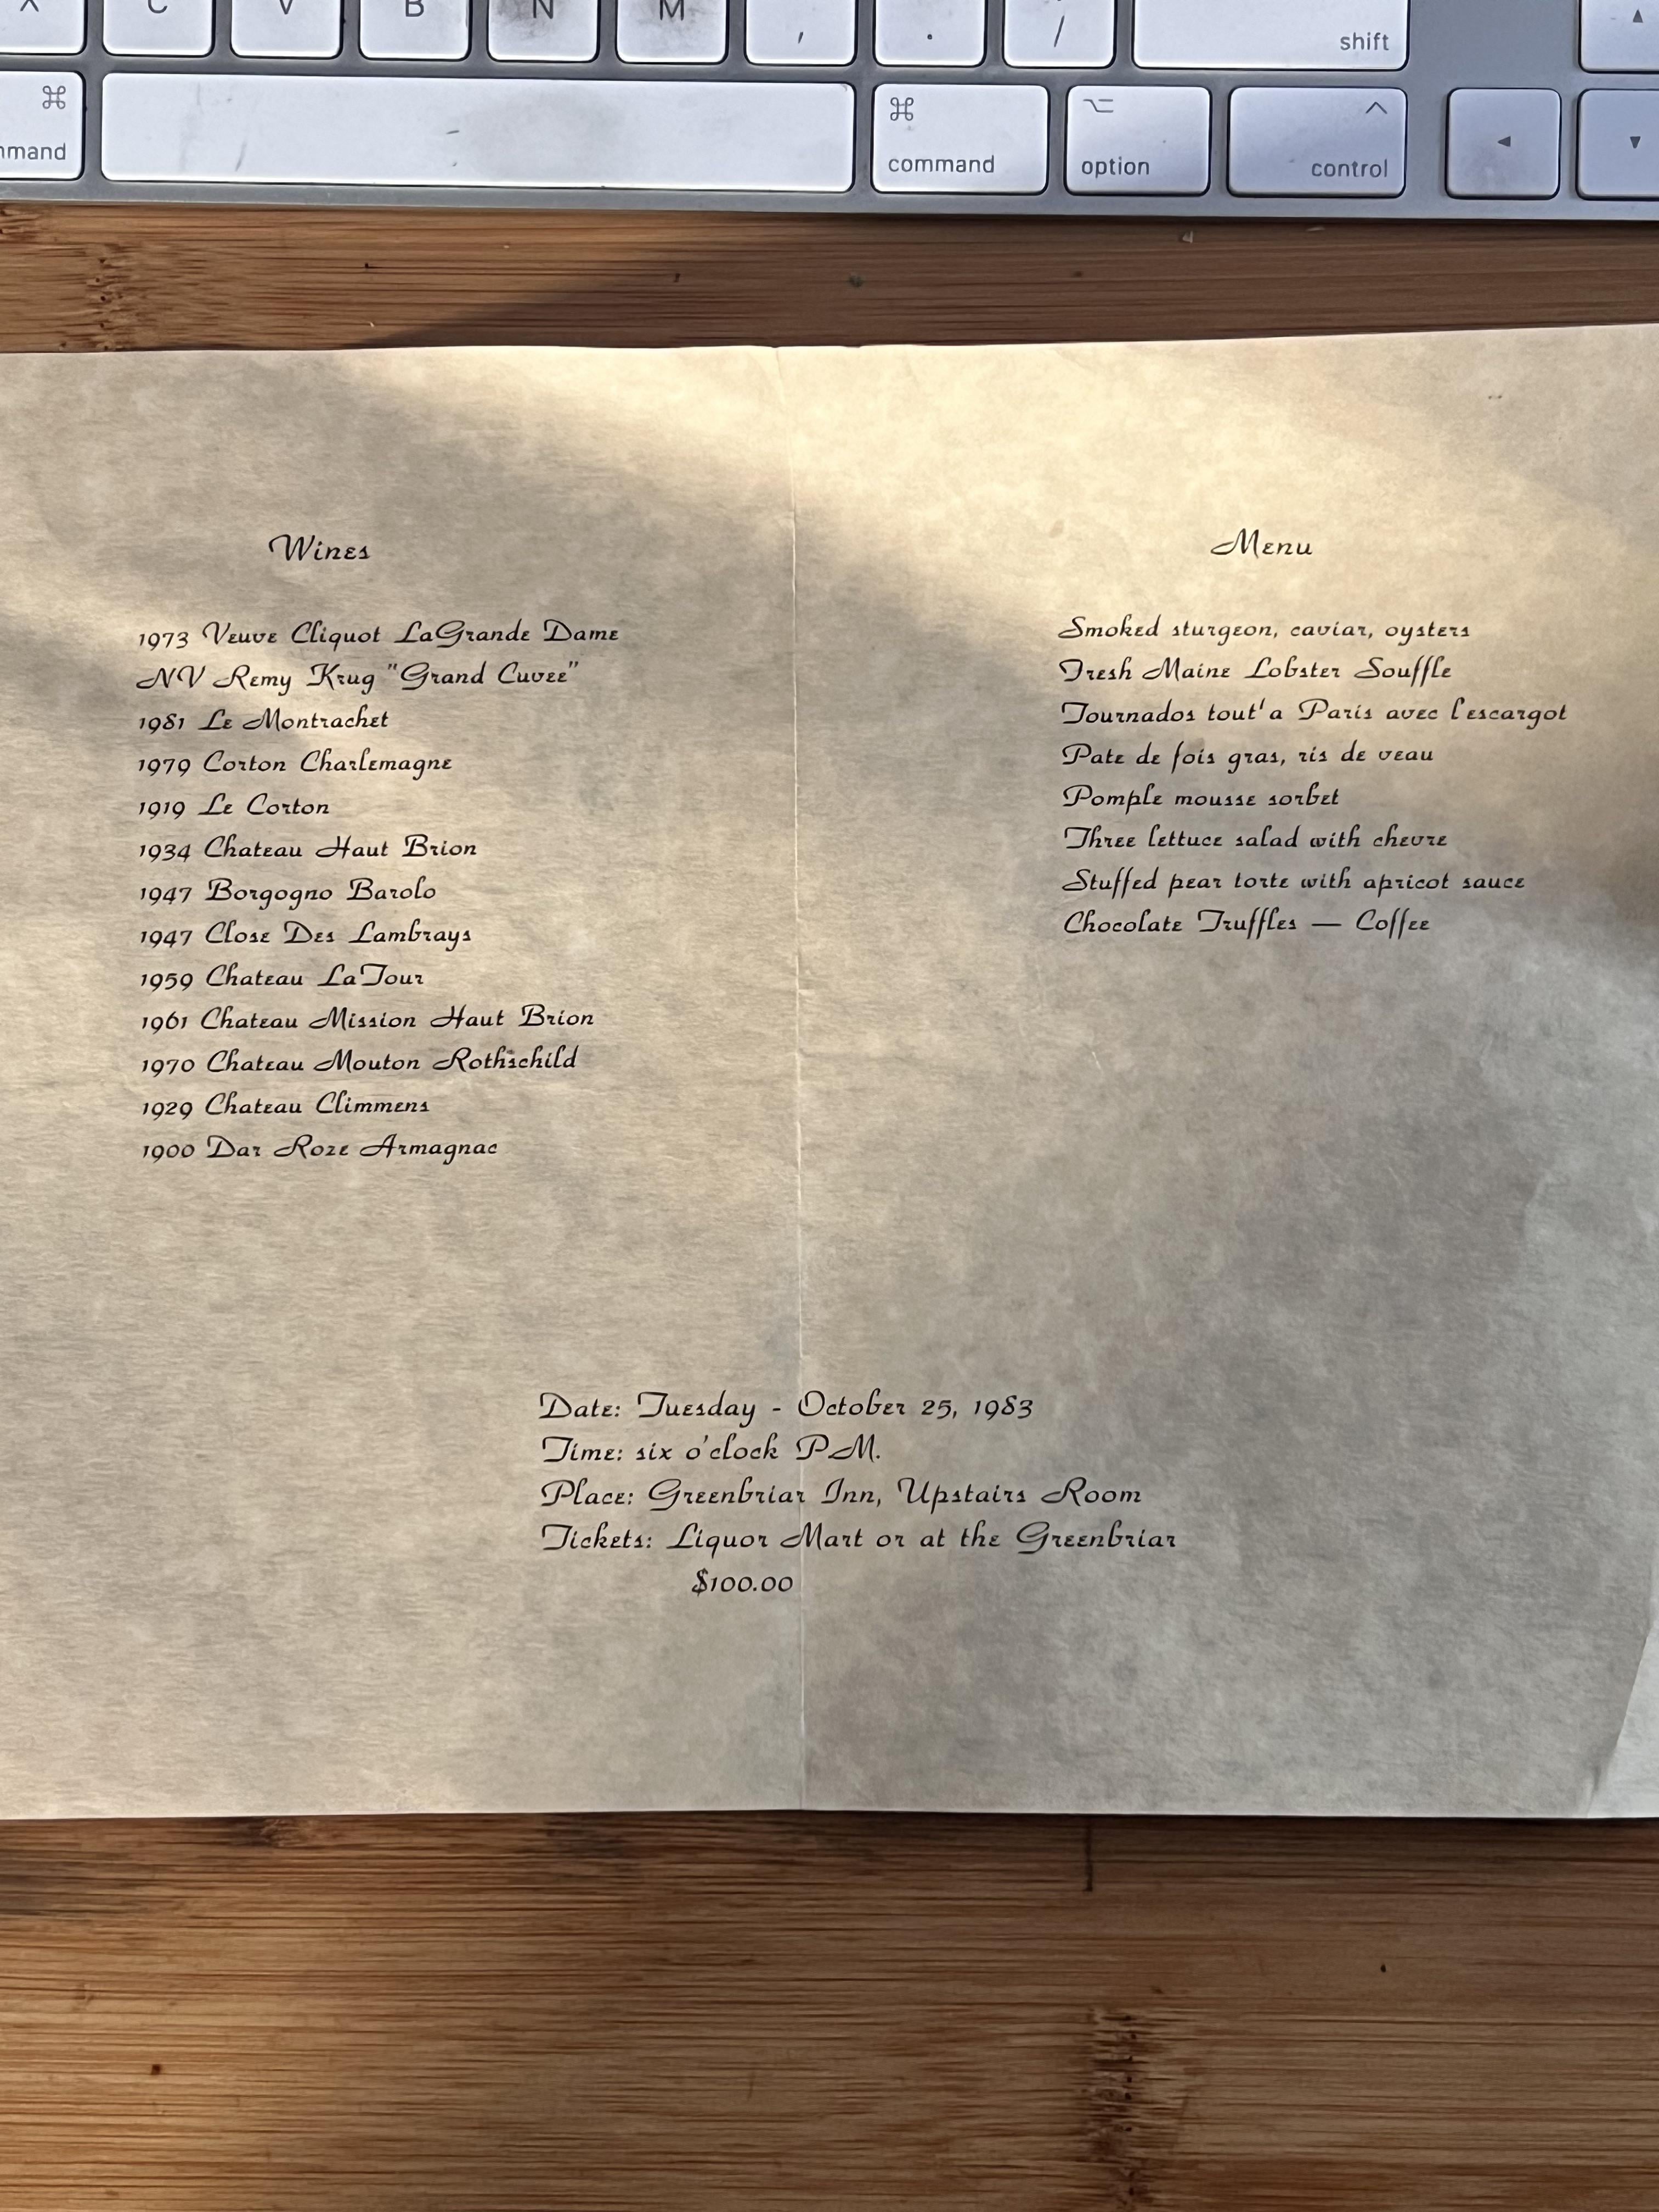 X C V B N M , . / shift
⌘ mmand ⌘ command ⌥ option ^ control ◄ ▼ ▲
Wines
1973 Veuve Cliquot LaGrande Dame
NV Remy Krug "Grand Cuvee"
1981 Le Montrachet
1979 Corton Charlemagne
1919 Le Corton
1934 Chateau Haut Brion
1947 Borgogno Barolo
1947 Close Des Lambrays
1959 Chateau LaTour
1961 Chateau Mission Haut Brion
1970 Chateau Mouton Rothschild
1929 Chateau Climmens
1900 Dar Roze Armagnac
Menu
Smoked sturgeon, caviar, oysters
Fresh Maine Lobster Souffle
Tournados tout'a Paris avec l'escargot
Pate de fois gras, ris de veau
Pomple mousse sorbet
Three lettuce salad with chevre
Stuffed pear torte with apricot sauce
Chocolate Truffles — Coffee
Date: Tuesday - October 25, 1983
Time: six o'clock P.M.
Place: Greenbriar Inn, Upstairs Room
Tickets: Liquor Mart or at the Greenbriar
$100.00